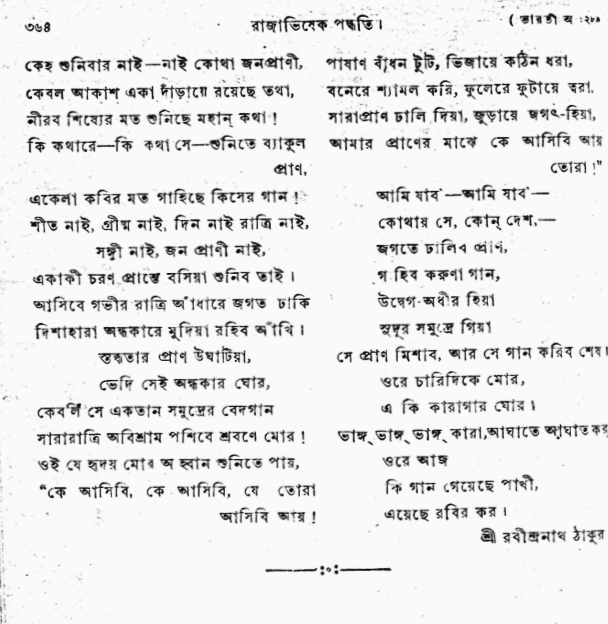 ৩৬৪
রাজাভিষেক পদ্ধতি।
( ভারতী অ :২৮৯
কেহ শুনিবার নাই—নাই কোথা জনপ্রাণী,
কেবল আকাশ একা দাঁড়ায়ে রয়েছে তথা,
নীরব শিষ্যের মত শুনিছে মহান্ কথা!
কি কথারে—কি কথা সে—শুনিতে ব্যাকুল
প্রাণ,
একেলা কবির মত গাহিছে কিসের গান!
শীত নাই, গ্রীষ্ম নাই, দিন নাই রাত্রি নাই,
সঙ্গী নাই, জন প্রাণী নাই,
একাকী চরণ প্রান্তে বসিয়া শুনিব তাই।
আসিবে গভীর রাত্রি আঁধারে জগত ঢাকি
দিশাহারা অন্ধকারে মুদিয়া রহিব আঁখি।
স্তব্ধতার প্রাণ উঘাটিয়া,
ভেদি সেই অন্ধকার ঘোর,
কেবলি সে একতান সমুদ্রের বেদগান
সারারাত্রি অবিশ্রাম পশিবে শ্রবণে মোর!
ওই যে হৃদয় মোর অ হ্বান শুনিতে পায়,
“কে আসিবি, কে আসিবি, যে তোরা
আসিবি আয়!
পাষাণ বাঁধন টুটি, ভিজায়ে কঠিন ধরা,
বনেরে শ্যামল করি, ফুলেরে ফুটায়ে ত্বরা,
সারাপ্রাণ ঢালি দিয়া, জুড়ায়ে জগৎ-হিয়া,
আমার প্রাণের মাঝে কে আসিবি আয়
তোরা!”
আমি যাব'—আমি যাব'—
কোথায় সে, কোন্ দেশ,—
জগতে ঢালিব প্রাণ,
গ হিব করুণা গান,
উদ্বেগ-অধীর হিয়া
সুদূর সমুদ্রে গিয়া
সে প্রাণ মিশাব, আর সে গান করিব শেষ।
ওরে চারিদিকে মোর,
এ কি কারাগার ঘোর।
ভাঙ্গ্ ভাঙ্গ্ ভাঙ্গ্ কারা,আঘাতে আঘাত কর্
ওরে আজ
কি গান গেয়েছে পাখী,
এয়েছে রবির কর।
শ্রী রবীন্দ্রনাথ ঠাকুর